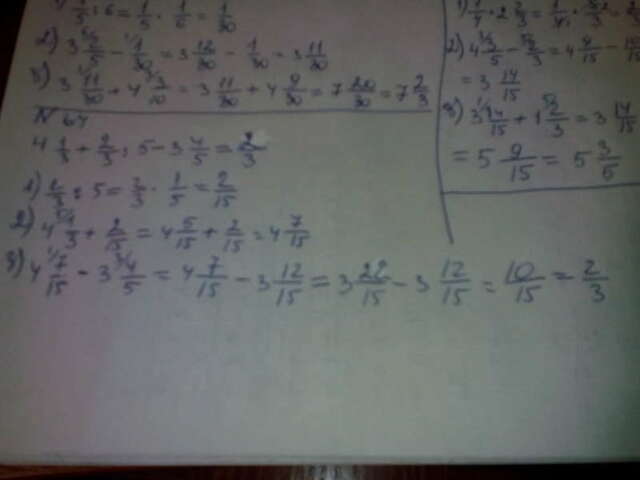 1/5 : 6 = 1/5 · 1/6 = 1/30
2) 3 2/5 - 1/30 = 3 12/30 - 1/30 = 3 11/30
3) 3 11/30 + 4 3/10 = 3 11/30 + 4 9/30 = 7 20/30 = 7 2/3
N 64
4 1/3 + 2/3 : 5 - 3 4/5 = 2/3
1) 2/3 : 5 = 2/3 · 1/5 = 2/15
2) 4 1/3 + 2/15 = 4 5/15 + 2/15 = 4 7/15
3) 4 7/15 - 3 4/5 = 4 7/15 - 3 12/15 = 3 22/15 - 3 12/15 = 10/15 = 2/3
1) 1/4 · 2 2/3 =
2) 4 3/5 - 2/3 = 4 9/15 - 10/15
= 3 14/15
3) 3 14/15 + 1 2/3 = 3 14/15
= 5 9/15 = 5 3/5